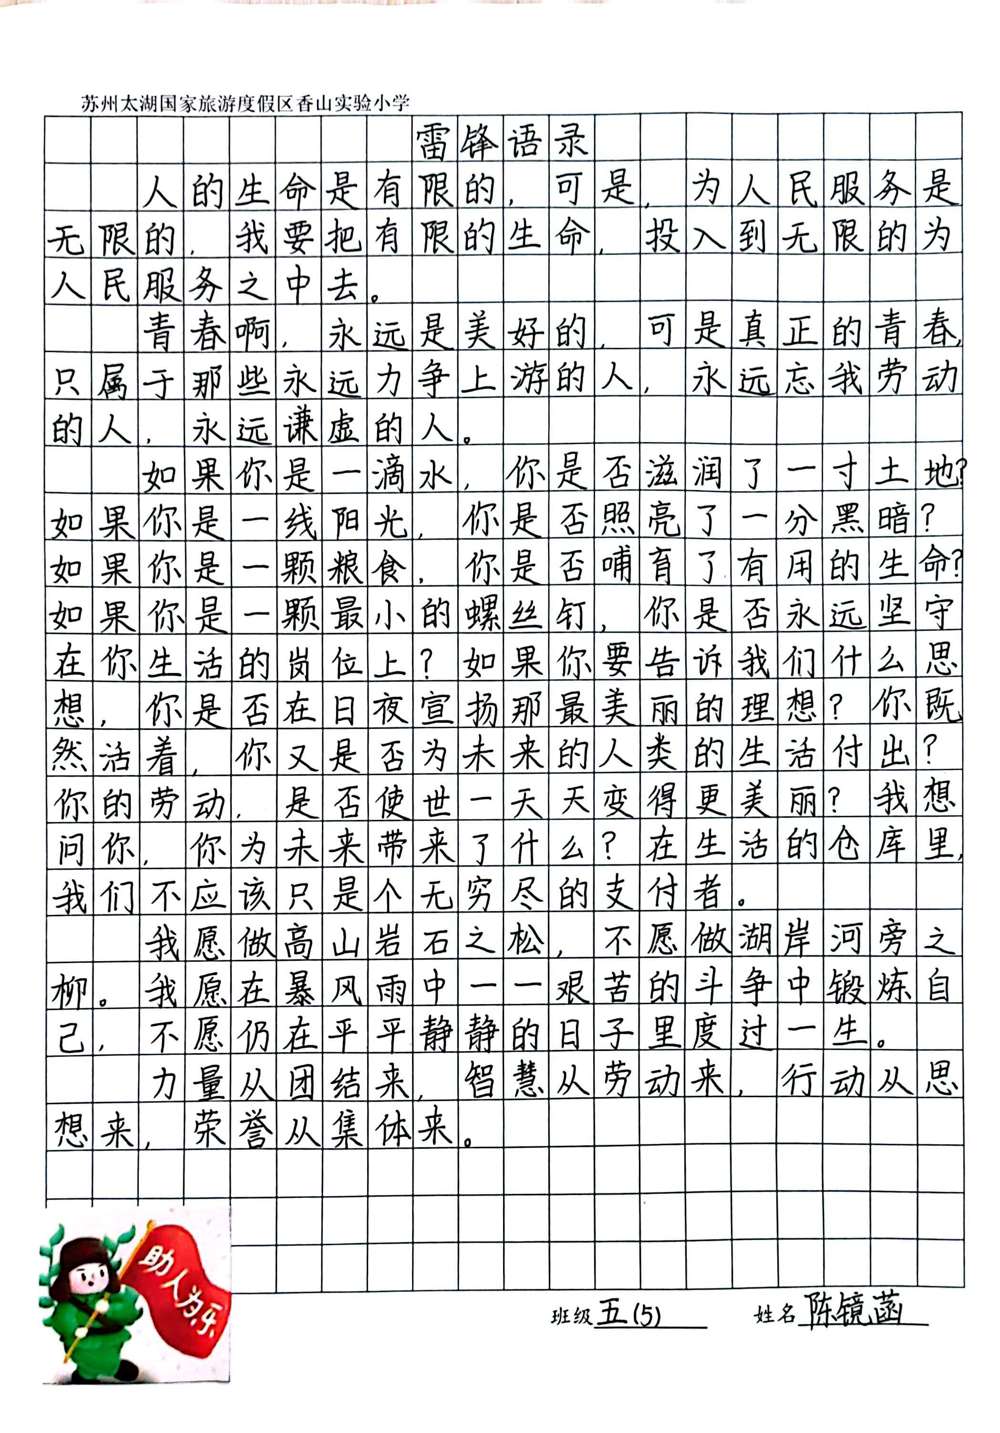 苏州太湖国家旅游度假区香山实验小学
雷锋语录
人的生命是有限的，可是，为人民服务是
无限的，我要把有限的生命，投入到无限的为
人民服务之中去。
青春啊，永远是美好的，可是真正的青春，
只属于那些永远力争上游的人，永远忘我劳动
的人，永远谦虚的人。
如果你是一滴水，你是否滋润了一寸土地？
如果你是一线阳光，你是否照亮了一分黑暗？
如果你是一颗粮食，你是否哺育了有用的生命？
如果你是一颗最小的螺丝钉，你是否永远坚守
在你生活的岗位上？如果你要告诉我们什么思
想，你是否在日夜宣扬那最美丽的理想？你既
然活着，你又是否为未来的人类的生活付出？
你的劳动，是否使世一天天变得更美丽？我想
问你，你为未来带来了什么？在生活的仓库里，
我们不应该只是个无穷尽的支付者。
我愿做高山岩石之松，不愿做湖岸河旁之
柳。我愿在暴风雨中一一艰苦的斗争中锻炼自
己，不愿仍在平平静静的日子里度过一生。
力量从团结来，智慧从劳动来，行动从思
想来，荣誉从集体来。
助人为乐
班级五(5) 姓名陈镜菡